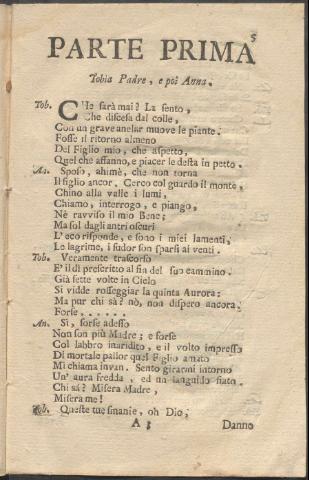 5
PARTE PRIMA
Tobia Padre, e poi Anna.
Tob. C'He sarà mai? La sento,
Che discesa dal colle,
Con un grave anelar muove le piante.
Fosse il ritorno almeno
Del Figlio mio, che aspetto,
Quel che affanno, e piacer le desta in petto.
An. Sposo, ahimè, che non torna
Il figlio ancor. Cerco col guardo il monte,
Chino alla valle i lumi,
Chiamo, interrogo, e piango,
Nè ravviso il mio Bene;
Ma sol dagli antri oscuri
L'eco risponde, e sono i miei lamenti,
Le lagrime, i sudor son sparsi ai venti.
Tob. Veramente trascorso
E' il dì prescritto al fin del suo cammino.
Già sette volte in Cielo
Si vidde rosseggiar la quinta Aurora:
Ma pur chi sà? nò, non dispero ancora.
Forse......
An. Si, forse adesso
Non son più Madre; e forse
Col labbro inaridito, e il volto impresso
Di mortale pallor quel Figlio amato
Mi chiama invan. Sento girarmi intorno
Un' aura fredda, ed un languido fiato.
Chi sá? Misera Madre,
Misera me!
Tob. Queste tue smanie, oh Dio,
A 3 Danno